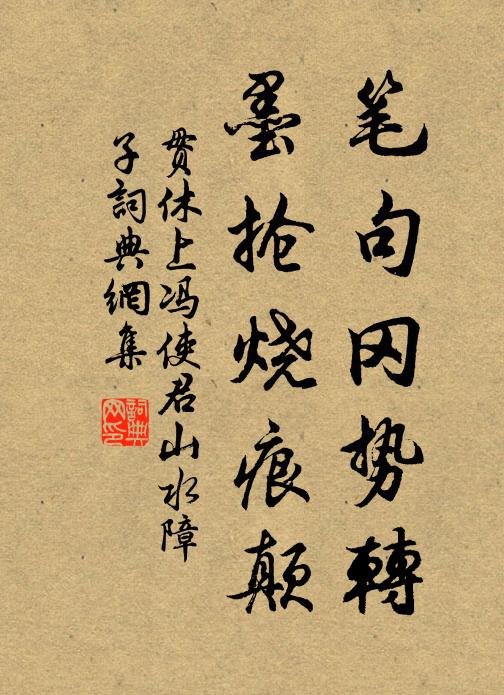 笔句冈势轉
墨抢烧痕颠
贯休上冯使君山水障
子詞典網集
詞典
网印